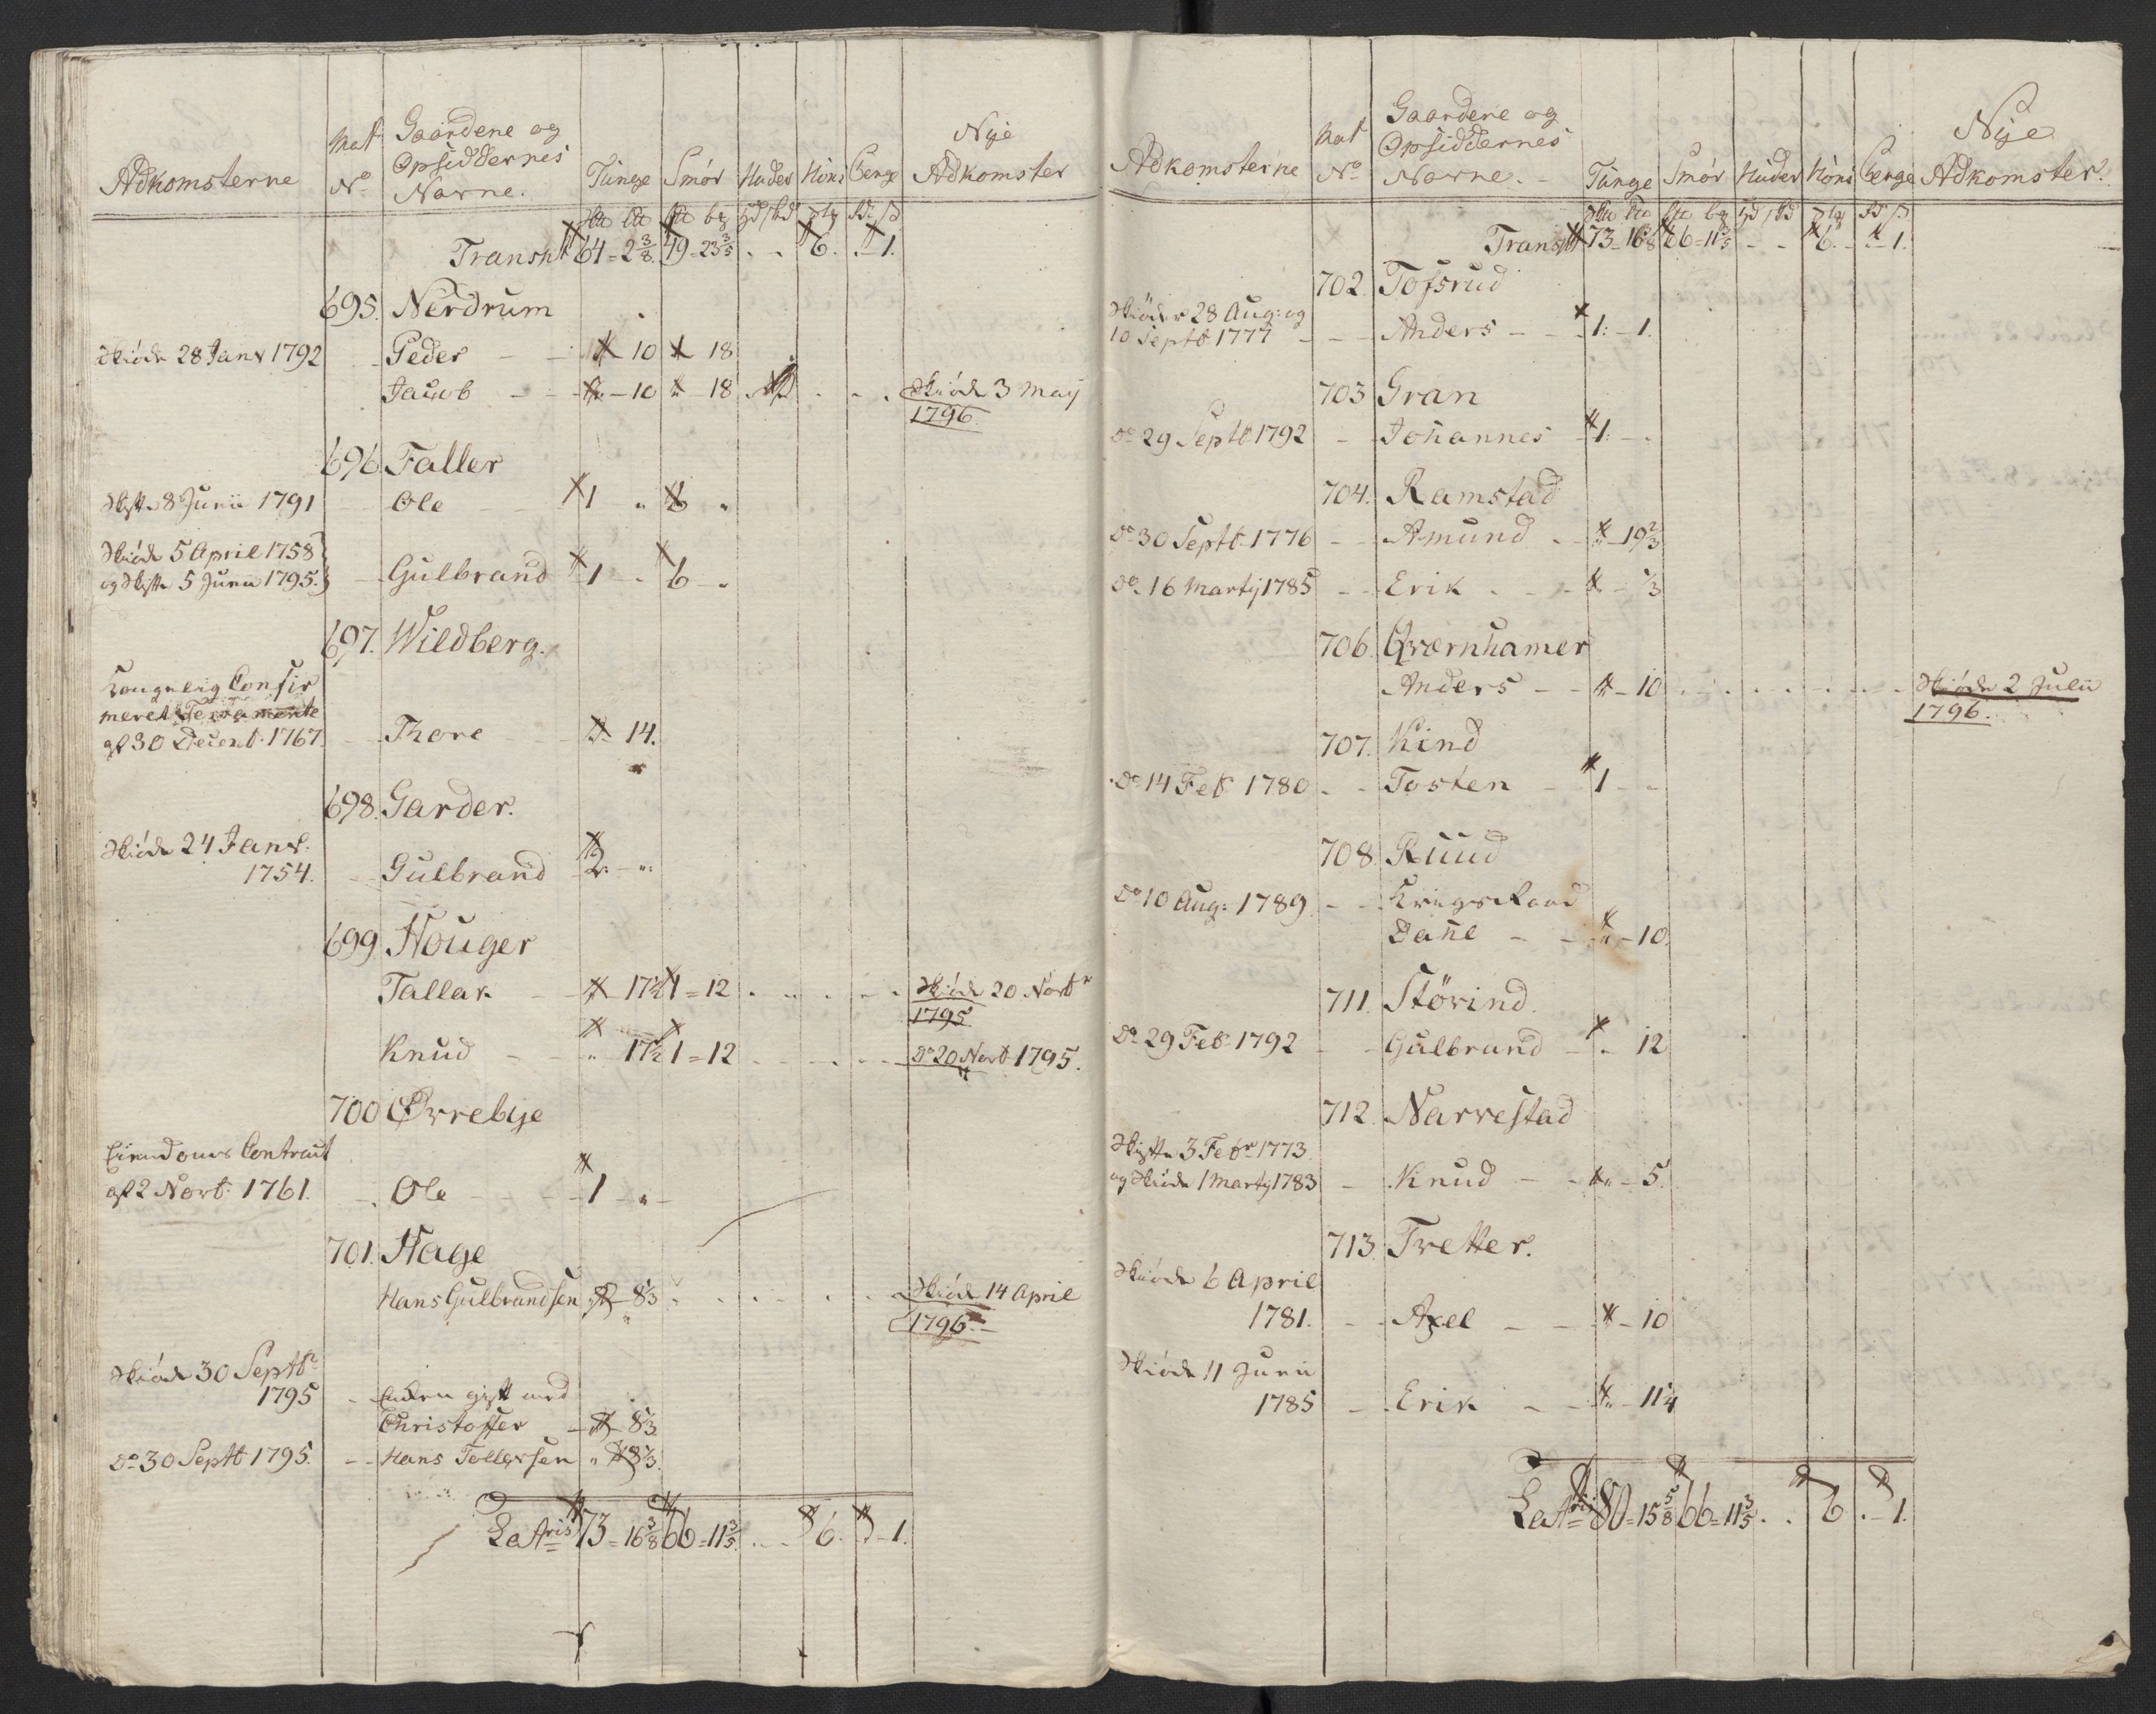 Adkomsterne Mat Nº Gaardene og Opsiddernes Navne. Tunge Smór Huder Höns Penge Nye Adkomster
Transpt 64 = 2 3/8 49 = 23 3/5 . . 6. . - 1.
695. Nerdrum
Skiöde 28 Janv 1792 - Peder - - 10 18
Jacob - - - 10 " 18 Skiöde 3 Maÿ
1796.
696. Faller
Skifte 8 Junii 1791 - Ole 1 " 6 "
Skiöde 5 April 1758
og Skifte 5 Junii 1795. - Gulbrand 1 - 6 -
697. Wildberg.
Kongelig Confir
meret Testamente
af 30 Decemb: 1767. - Thore - 14.
698. Garder.
Skiöde 24 Janv:
1754. - Gulbrand 2 - "
699 Houger
Tallak - 17½ 1 = 12 Skiöde 20 Novbr
1795
Knud - - " 17½ 1 = 12 Dº 20 Novb 1795.
700 Ørrebye
Eiendoms Contract
af 2 Novb: 1761. - Ole - - - 1 - " -
701. Hage
Hans Gulbrandsen 8⅓ Skiöde 14 April
1796. -
Skiöde 30 Septbr
1795 - Enken gift med
Christoffer - 8⅓
Dº 30 Septb 1795. - Hans Tollersen " 8⅓.
Latris 73 = 16 3/8 66 = 11 3/5 . . 6. - 1.
Adkomsterne Mat Nº Gaardene og Opsiddernes Navne. - Tunge Smór Huder Höns Penge Nye Adkomster.
Transpt 73 - 16 3/8 66 = 11 3/5 - - 6. - 1.
702. Tofsrud
Skiöder 28 Aug: og
10 Septb 1777 - - - Anders - - 1: - 1.
703 Gran
Dº 29 Septb 1792 - Johannes - 1: - .
704. Ramstad
Dº 30 Septb 1776 - - Amund - " - 19⅔
Dº 16 Martÿ 1785 - - Erik - - - - ⅓
706. Qværnhamer
Anders - - - 10 Skiöde 2 Julii
1796.
707. Kind
Dº 14 Feb 1780 - - Tosten - 1 - -
708. Ruud
Dº 10 Aug: 1789. - - Krigs Raad
Danne - - " - 10.
711. Störind.
Dº 29 Feb 1792 - - Gulbrand - - 12
712. Narrestad
Skifte 3 Febr 1773.
og Skiöde 1 Martÿ 1783 - Knud - - " - 5.
713. Tretter.
Skiöde 6 April
1781. - - Axel - - - 10
Skiöde 11 Junii
1785 - - Erik - - " - 11¼
Latris 80 = 15 5/8 66 = 11 3/5 . . 6 . - 1.